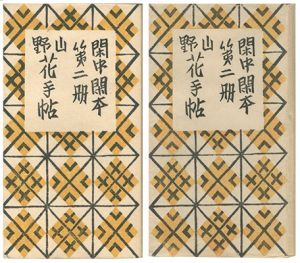 閑中閑本
第二冊
山野花手帖
閑中閑本
第二冊
山野花手帖